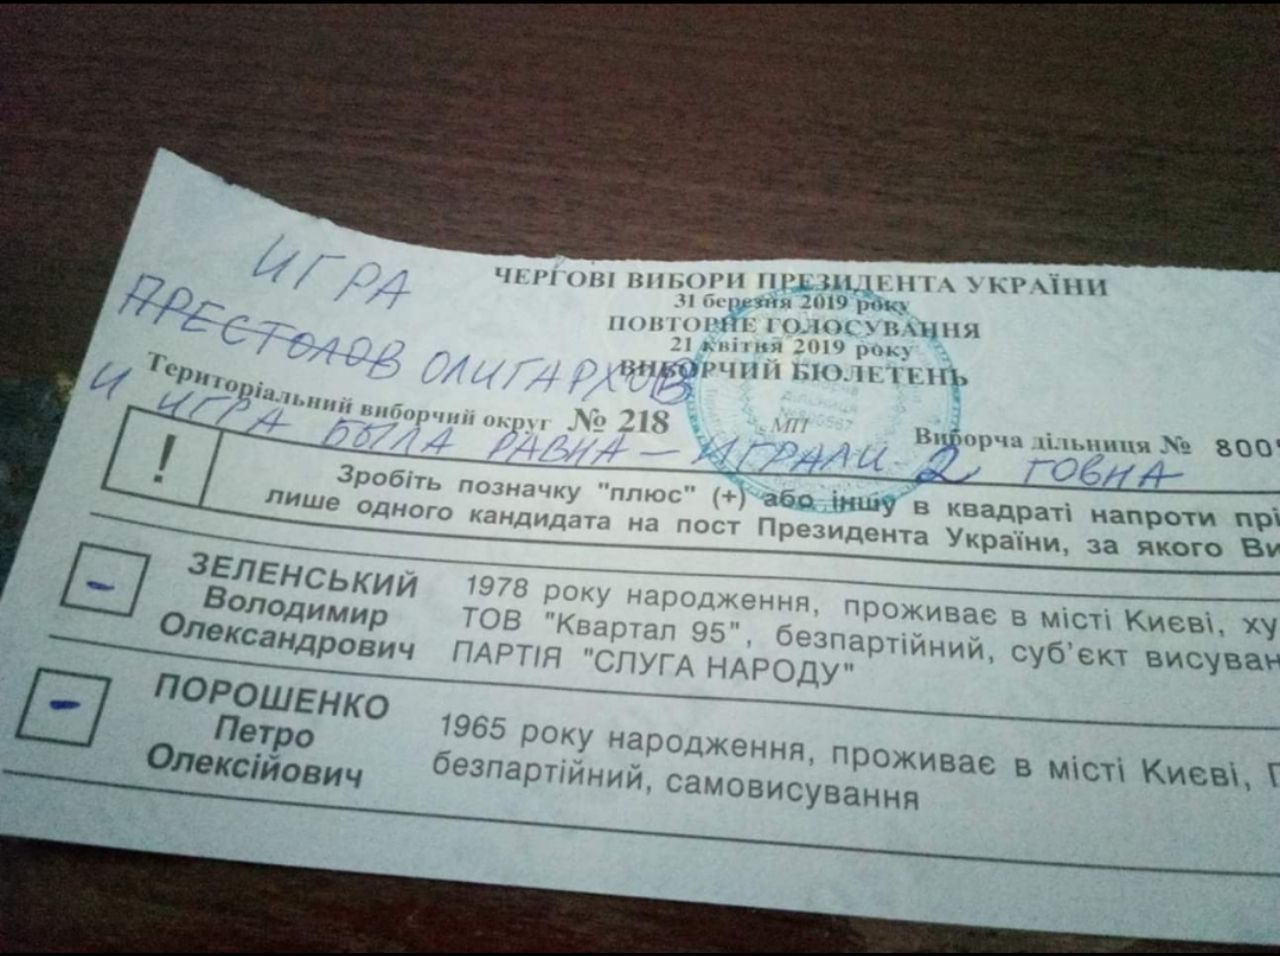 ИГРА
ПРЕСТОЛОВ ОЛИГАРХОВ
И ИГРА БЫЛА РАВНА – ИГРАЛИ 2 ГОВНА
ЧЕРГОВІ ВИБОРИ ПРЕЗИДЕНТА УКРАЇНИ
31 березня 2019 року
ПОВТОРНЕ ГОЛОСУВАННЯ
21 квітня 2019 року
ВИБОРЧИЙ БЮЛЕТЕНЬ
Територіальний виборчий округ № 218
МП
Виборча дільниця № 800
! Зробіть позначку "плюс" (+) або іншу в квадраті напроти прі
лише одного кандидата на пост Президента України, за якого Ви
- ЗЕЛЕНСЬКИЙ
Володимир
Олександрович
1978 року народження, проживає в місті Києві, ху
ТОВ "Квартал 95", безпартійний, суб'єкт висуван
ПАРТІЯ "СЛУГА НАРОДУ"
- ПОРОШЕНКО
Петро
Олексійович
1965 року народження, проживає в місті Києві, П
безпартійний, самовисування